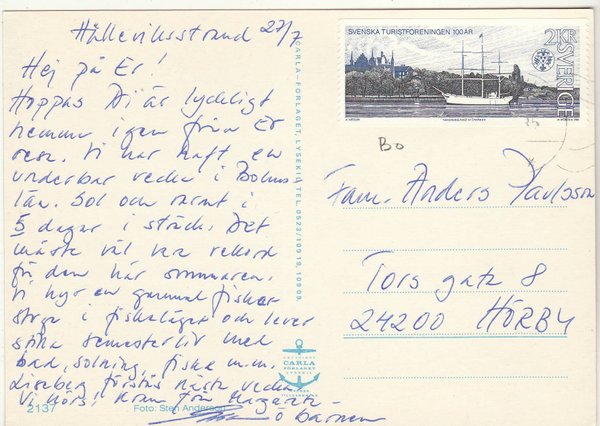 Hälleviksstrand 27/7
Hej på Er!
Hoppas Ni är lyckligt
hemma igen från Er
resa. Vi har haft en
underbar vecka i Bohus-
län. Sol och varmt i
5 dagar i sträck. Det
måste väl vara rekord
för den här sommaren.
Vi hyr en gammal fiskar
stuga i fiskeläget och lever
semesterliv med
bad, solning, fiske m.m.
Liseberg förstås nästa vecka.
Vi hörs! Kram från Margareta
o barnen
2137
Foto: Sten Andersson
CARLA-FÖRLAGET, LYSEKIL TEL. 0523/109 19, 109 09.
COPYRIGHT
CARLA
FÖRLAGET
LYSEKIL
SVENSKA TURISTFÖRENINGEN 100 ÅR
2KR
SVERIGE
Bo
Fam. Anders Paulsson
Tors gata 8
24200 HÖRBY